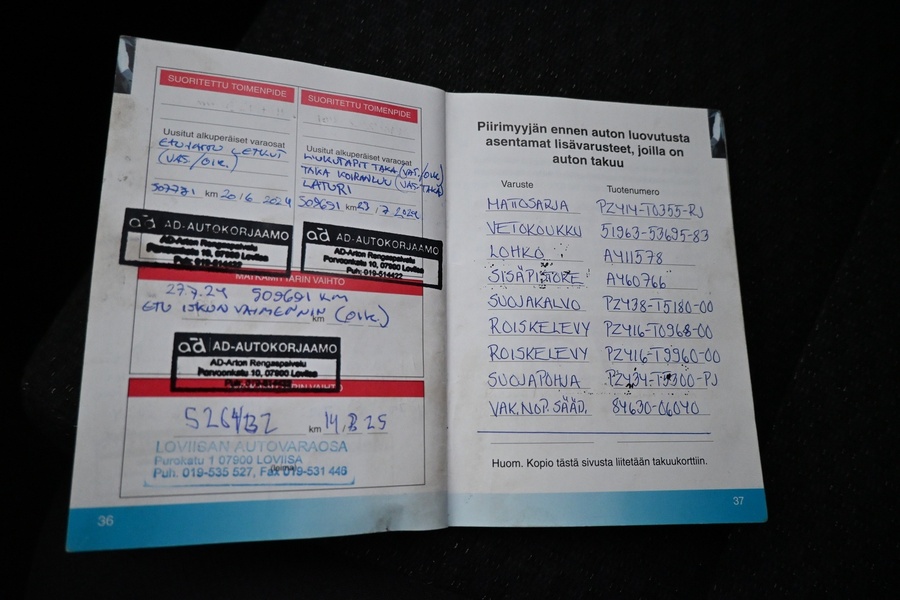 SUORITETTU TOIMENPIDE
Uusitut alkuperäiset varaosat
ETUJARRU LETKUT
(VAS./OIK.)
507771 km 20/6 2024
ad AD-AUTOKORJAAMO
AD-Arton Rengaspalvelu
Porvoonkatu 10, 07900 Loviisa
Puh. 019-514422
SUORITETTU TOIMENPIDE
Uusitut alkuperäiset varaosat
LIUKUTAPIT TAKA (VAS./OIK)
TAKA KOIRANLUU (VAS-TAKA)
LATURI
509691 km 23.7.2024
ad AD-AUTOKORJAAMO
AD-Arton Rengaspalvelu
Porvoonkatu 10, 07900 Loviisa
Puh. 019-514422
MATKAMITTARIN VAIHTO
27.7.24 509691 KM
ETU ISKUNVAIMENNIN (OIK.)
km
ad AD-AUTOKORJAAMO
AD-Arton Rengaspalvelu
Porvoonkatu 10, 07900 Loviisa
VAIHTO
km 14.8.25
LOVIISAN AUTOVARAOSA
Purokatu 1 07900 LOVIISA
Puh. 019-535 527, Fax 019-531 446
36
Piirimyyjän ennen auton luovutusta
asentamat lisävarusteet, joilla on
auton takuu
Varuste Tuotenumero
MATTOSARJA PZ414-T0355-RJ
VETOKOUKKU 51963-53695-83
LOHKO A411578
SISÄPISTOKE A460766
SUOJAKALVO PZ438-T5180-00
ROISKELEVY PZ416-T0968-00
ROISKELEVY PZ416-T9960-00
SUOJAPOHJA PZ434-T9300-PJ
VAK.NOP.SÄÄD. 84630-06040
Huom. Kopio tästä sivusta liitetään takuukorttiin.
37